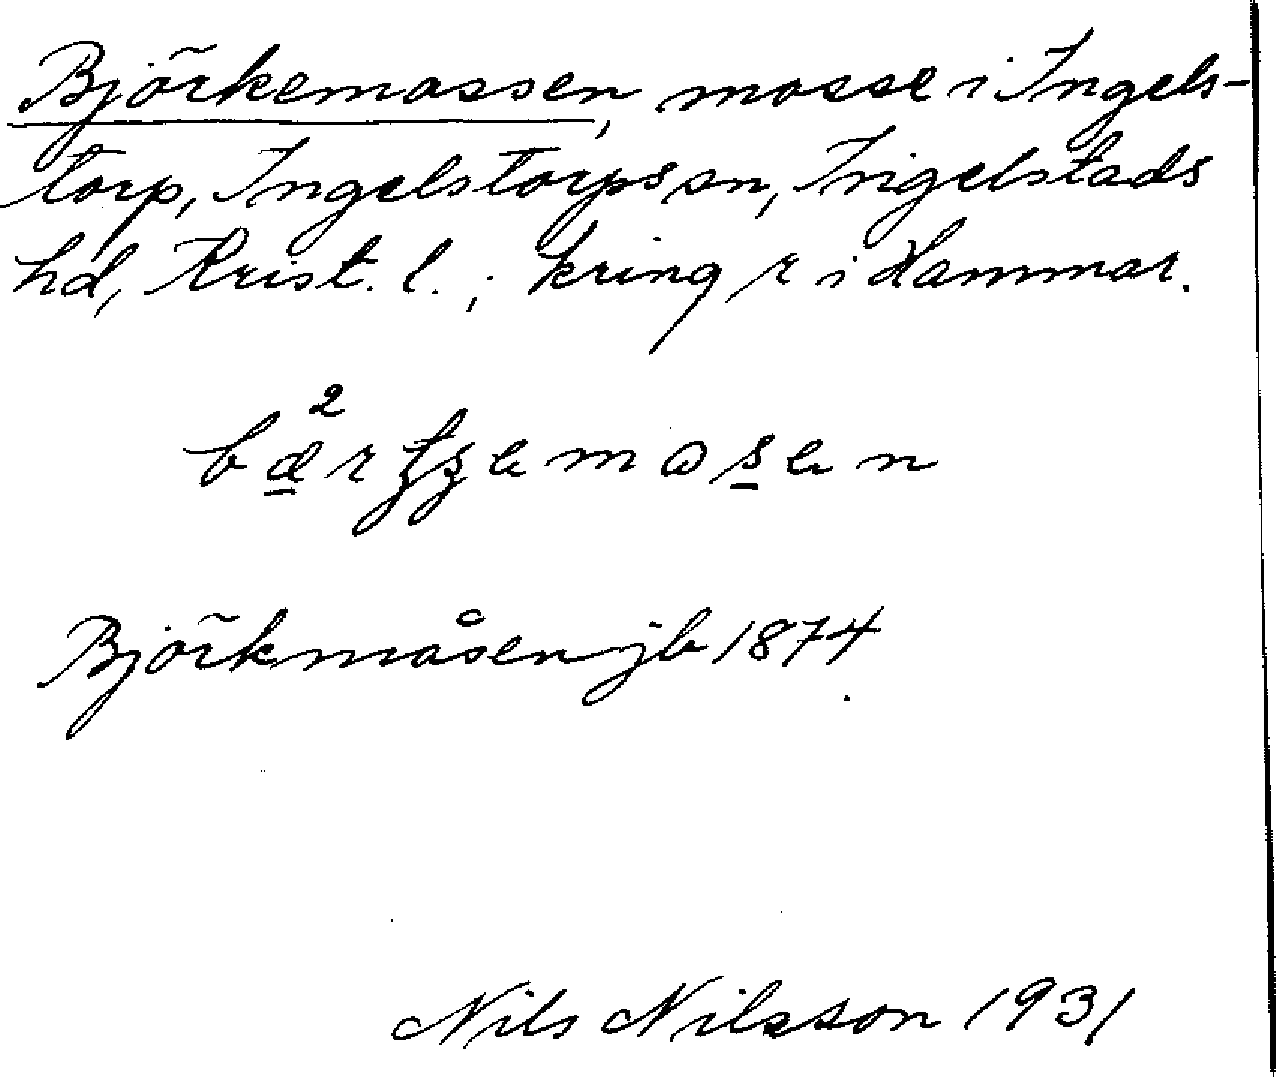 Björkemossen, mosse i Ingels-
torp, Ingelstorps sn, Ingelstads
hd, Krist. l.; kring r i Hammar.
Björkmåsen jb 1874
Nils Nilsson 1931